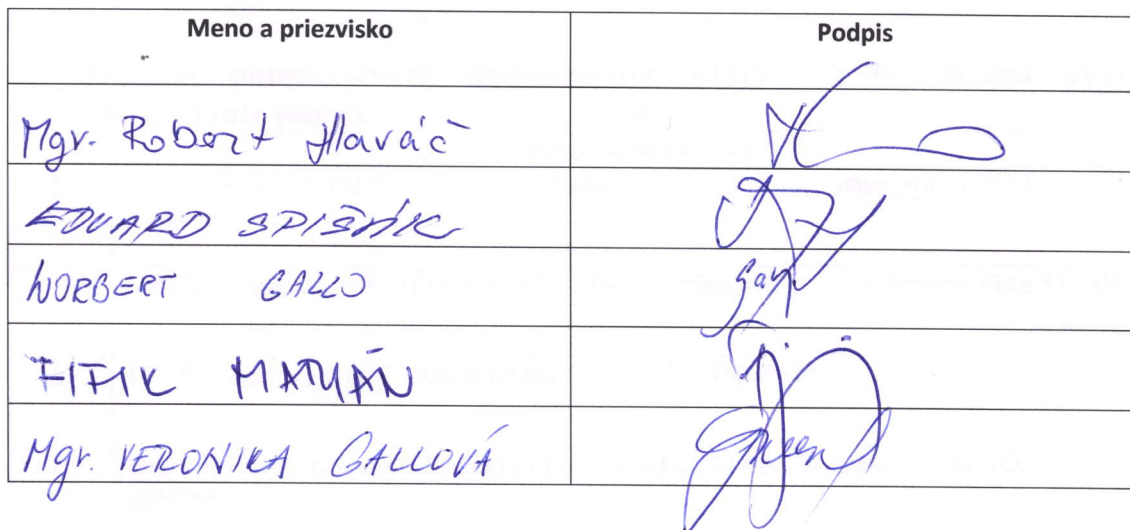 Meno a priezvisko Podpis
Mgr. Robert Hlaváč
EDUARD SPIŠÁK
NORBERT GALLO
MATUÁN
Mgr. VERONIKA GALLOVÁ